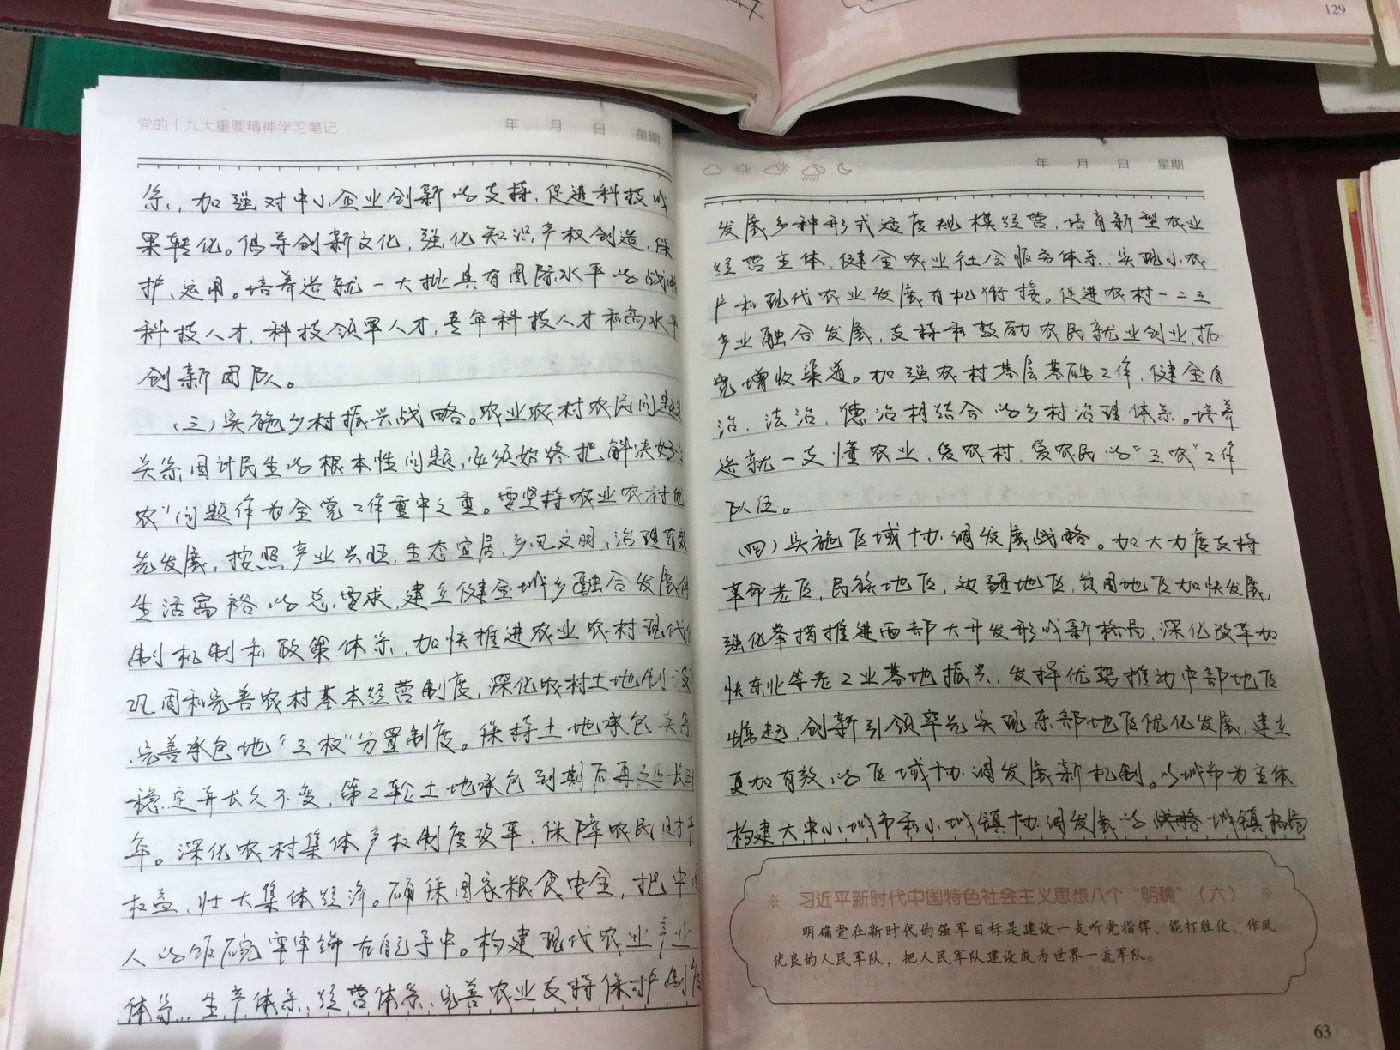 129
党的十九大重要精神学习笔记 年 月 日 星期
系，加强对中小企业创新的支持，促进科技成
果转化。倡导创新文化，强化知识产权创造、保
护、运用。培养造就一大批具有国际水平的战略
科技人才、科技领军人才、青年科技人才和高水平
创新团队。
（三）实施乡村振兴战略。农业农村农民问题是
关系国计民生的根本性问题，必须始终把解决好“三
农”问题作为全党工作重中之重。要坚持农业农村优
先发展，按照产业兴旺、生态宜居、乡风文明、治理有效、
生活富裕的总要求，建立健全城乡融合发展体
制机制和政策体系，加快推进农业农村现代化
巩固和完善农村基本经营制度，深化农村土地制度
完善承包地“三权”分置制度。保持土地承包关系
稳定并长久不变，第二轮土地承包到期后再延长三十
年。深化农村集体产权制度改革，保障农民财产
权益，壮大集体经济。确保国家粮食安全，把中国
人的饭碗牢牢端在自己手中。构建现代农业产业
体系、生产体系、经营体系，完善农业支持保护制度
年 月 日 星期
发展多种形式适度规模经营，培育新型农业
经营主体，健全农业社会服务体系，实现小农
户和现代农业发展有机衔接。促进农村一二三
产业融合发展，支持和鼓励农民就业创业，拓
宽增收渠道。加强农村基层基础工作，健全自
治、法治、德治相结合的乡村治理体系。培养
造就一支懂农业、爱农村、爱农民的“三农”工作
队伍。
（四）实施区域协调发展战略。加大力度支持
革命老区、民族地区、边疆地区、贫困地区加快发展，
强化举措推进西部大开发形成新格局，深化改革加
快东北等老工业基地振兴，发挥优势推动中部地区
崛起，创新引领率先实现东部地区优化发展，建立
更加有效的区域协调发展新机制。以城市为主体
构建大中小城市和小城镇协调发展的城镇格局
※ 习近平新时代中国特色社会主义思想八个“明确”（六） ※
明确党在新时代的强军目标是建设一支听党指挥、能打胜仗、作风
优良的人民军队，把人民军队建设成为世界一流军队。
63